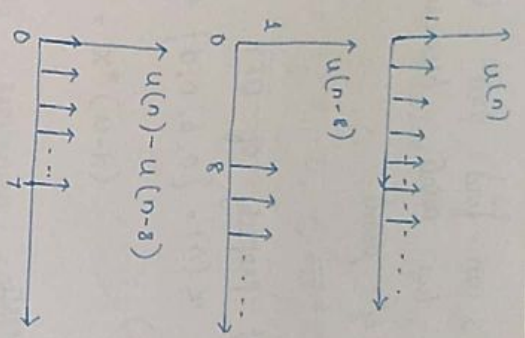 u(n)
1
. . . .
u(n-8)
1
0
8
. . . .
u(n) - u(n-8)
0
7
. . .